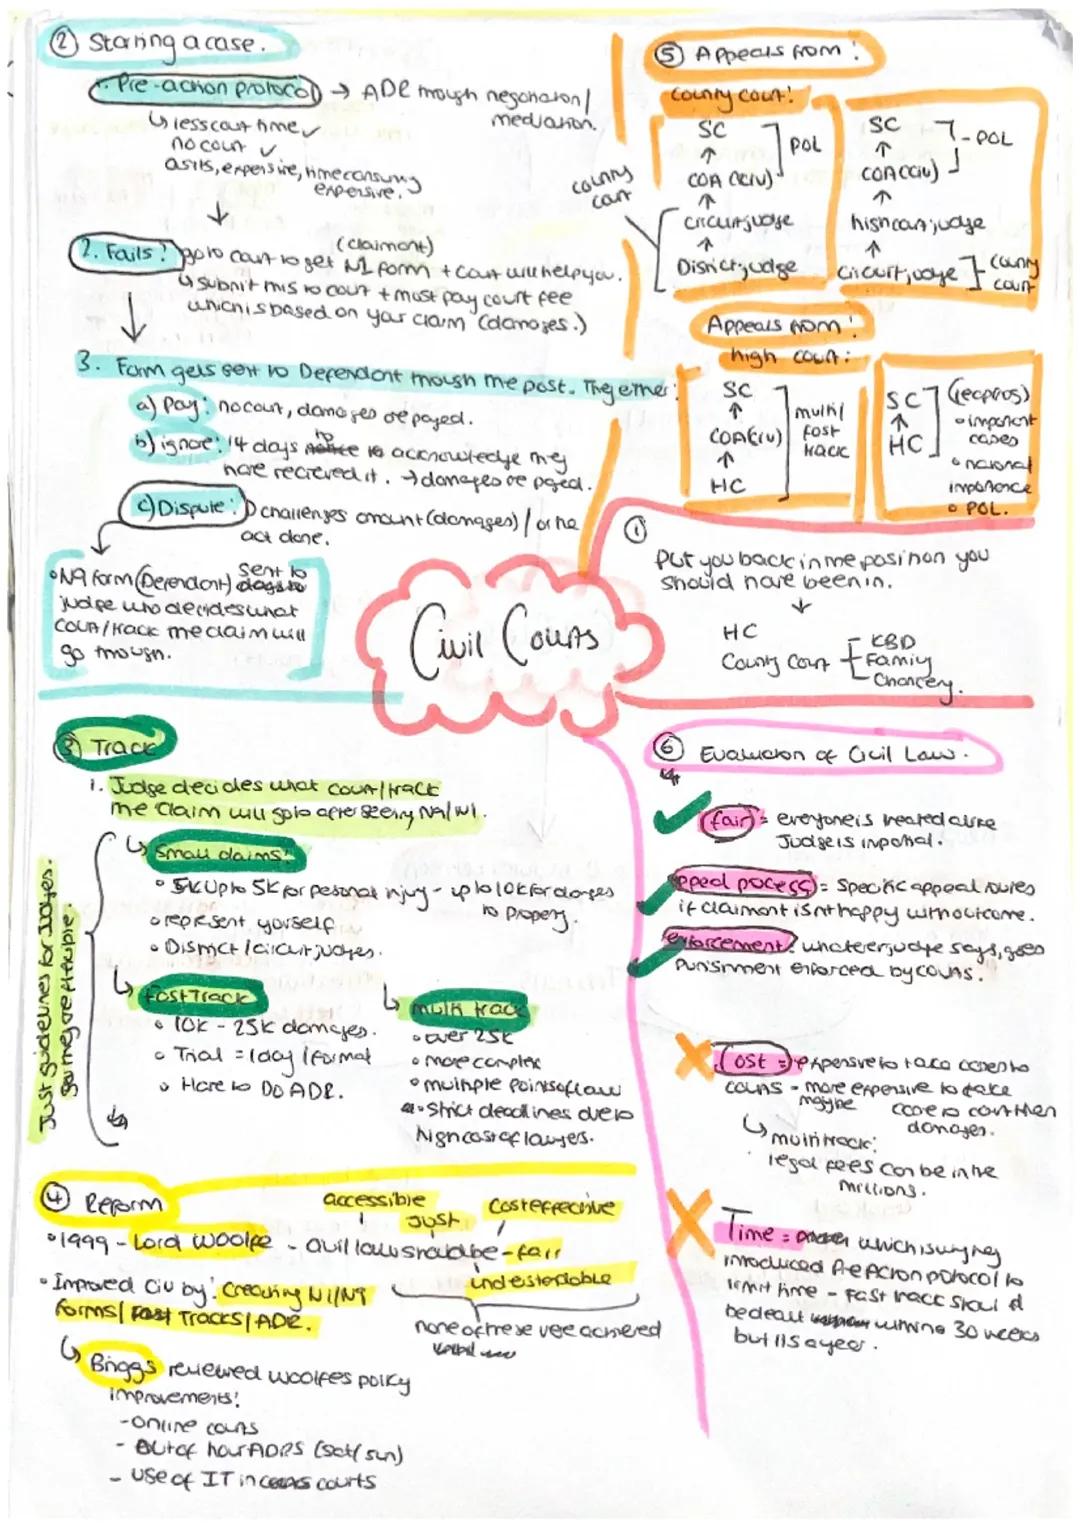 ② Starting a case.
1. Pre-action protocol → ADR through negotiation/
mediation.
↳ less court time ✓
no court ✓
as its, expensive, time consuming
expensive.
2. Fails: go to court to get N1 form + court will help you.
(claimant)
↳ submit this to court + must pay court fee
which is based on your claim (damages.)
3. Form gets sent to Defendant through the post. They either:
a) Pay: no court, damages are payed.
b) ignore: 14 days to acknowledge they
have recieved it. → damages are payed.
c) Dispute: D challenges amount (damages) / or the
act done.
• N9 form (Defendant) sent to
judge who decides what
court/track the claim will
go through.
⑤ Appeals from:
county court:
SC
↑
COA (civ)
POL
↑
circuit judge
↑
District judge
county
court
SC
↑
COA (civ)
- POL
↑
high court judge
↑
circuit judge
county
court
Appeals from:
high court:
SC
↑
COA (civ)
↑
HC
multi/
fast
track
SC
↑
HC
(leapfrog)
• important
cases
• national
importance
• POL.
Civil Courts
①
Put you back in the position you
should have been in.
↓
HC
County Court
KBD
Family
Chancery.
③ Track
1. Judge decides what court/track
the claim will go to after seeing N9/N1.
Just guidelines for Judges.
↳ Small claims:
• 5k up to 5k for personal injury - up to 10k for damages
to property.
• represent yourself
• District / circuit judges.
↳ fast Track
• 10k - 25k damages.
• Trial = 1 day / formal
• Have to DO ADR.
↳ multi track
• over 25k
• more complex
• multiple points of law
• strict deadlines due to
high cost of lawyers.
④ Reform
accessible
Just
cost effective
• 1999 - Lord Woolfe - civil law should be - fair
understandable
• Improved civ by: creating N1/N9
forms / fast Tracks / ADR.
none of these were achieved
↳ Briggs reviewed woolfes policy
improvements:
- Online courts
- Out of hour ADRS (sat/sun)
- use of IT in courts
⑥ Evaluation of Civil Law.
fair = everyone is treated alike
Judge is impartial.
appeal process = specific appeal routes
if claimant isnt happy with outcome.
enforcement: whatever judge says, goes
punishment enforced by courts.
Cost = expensive to take cases to
courts - more expensive to take
maybe case to court then
damages.
↳ multi track:
legal fees can be in the
millions.
Time = which is why they
introduced Pre Action protocol to
limit time - fast track should
be dealt within a 30 weeks
but its a year.